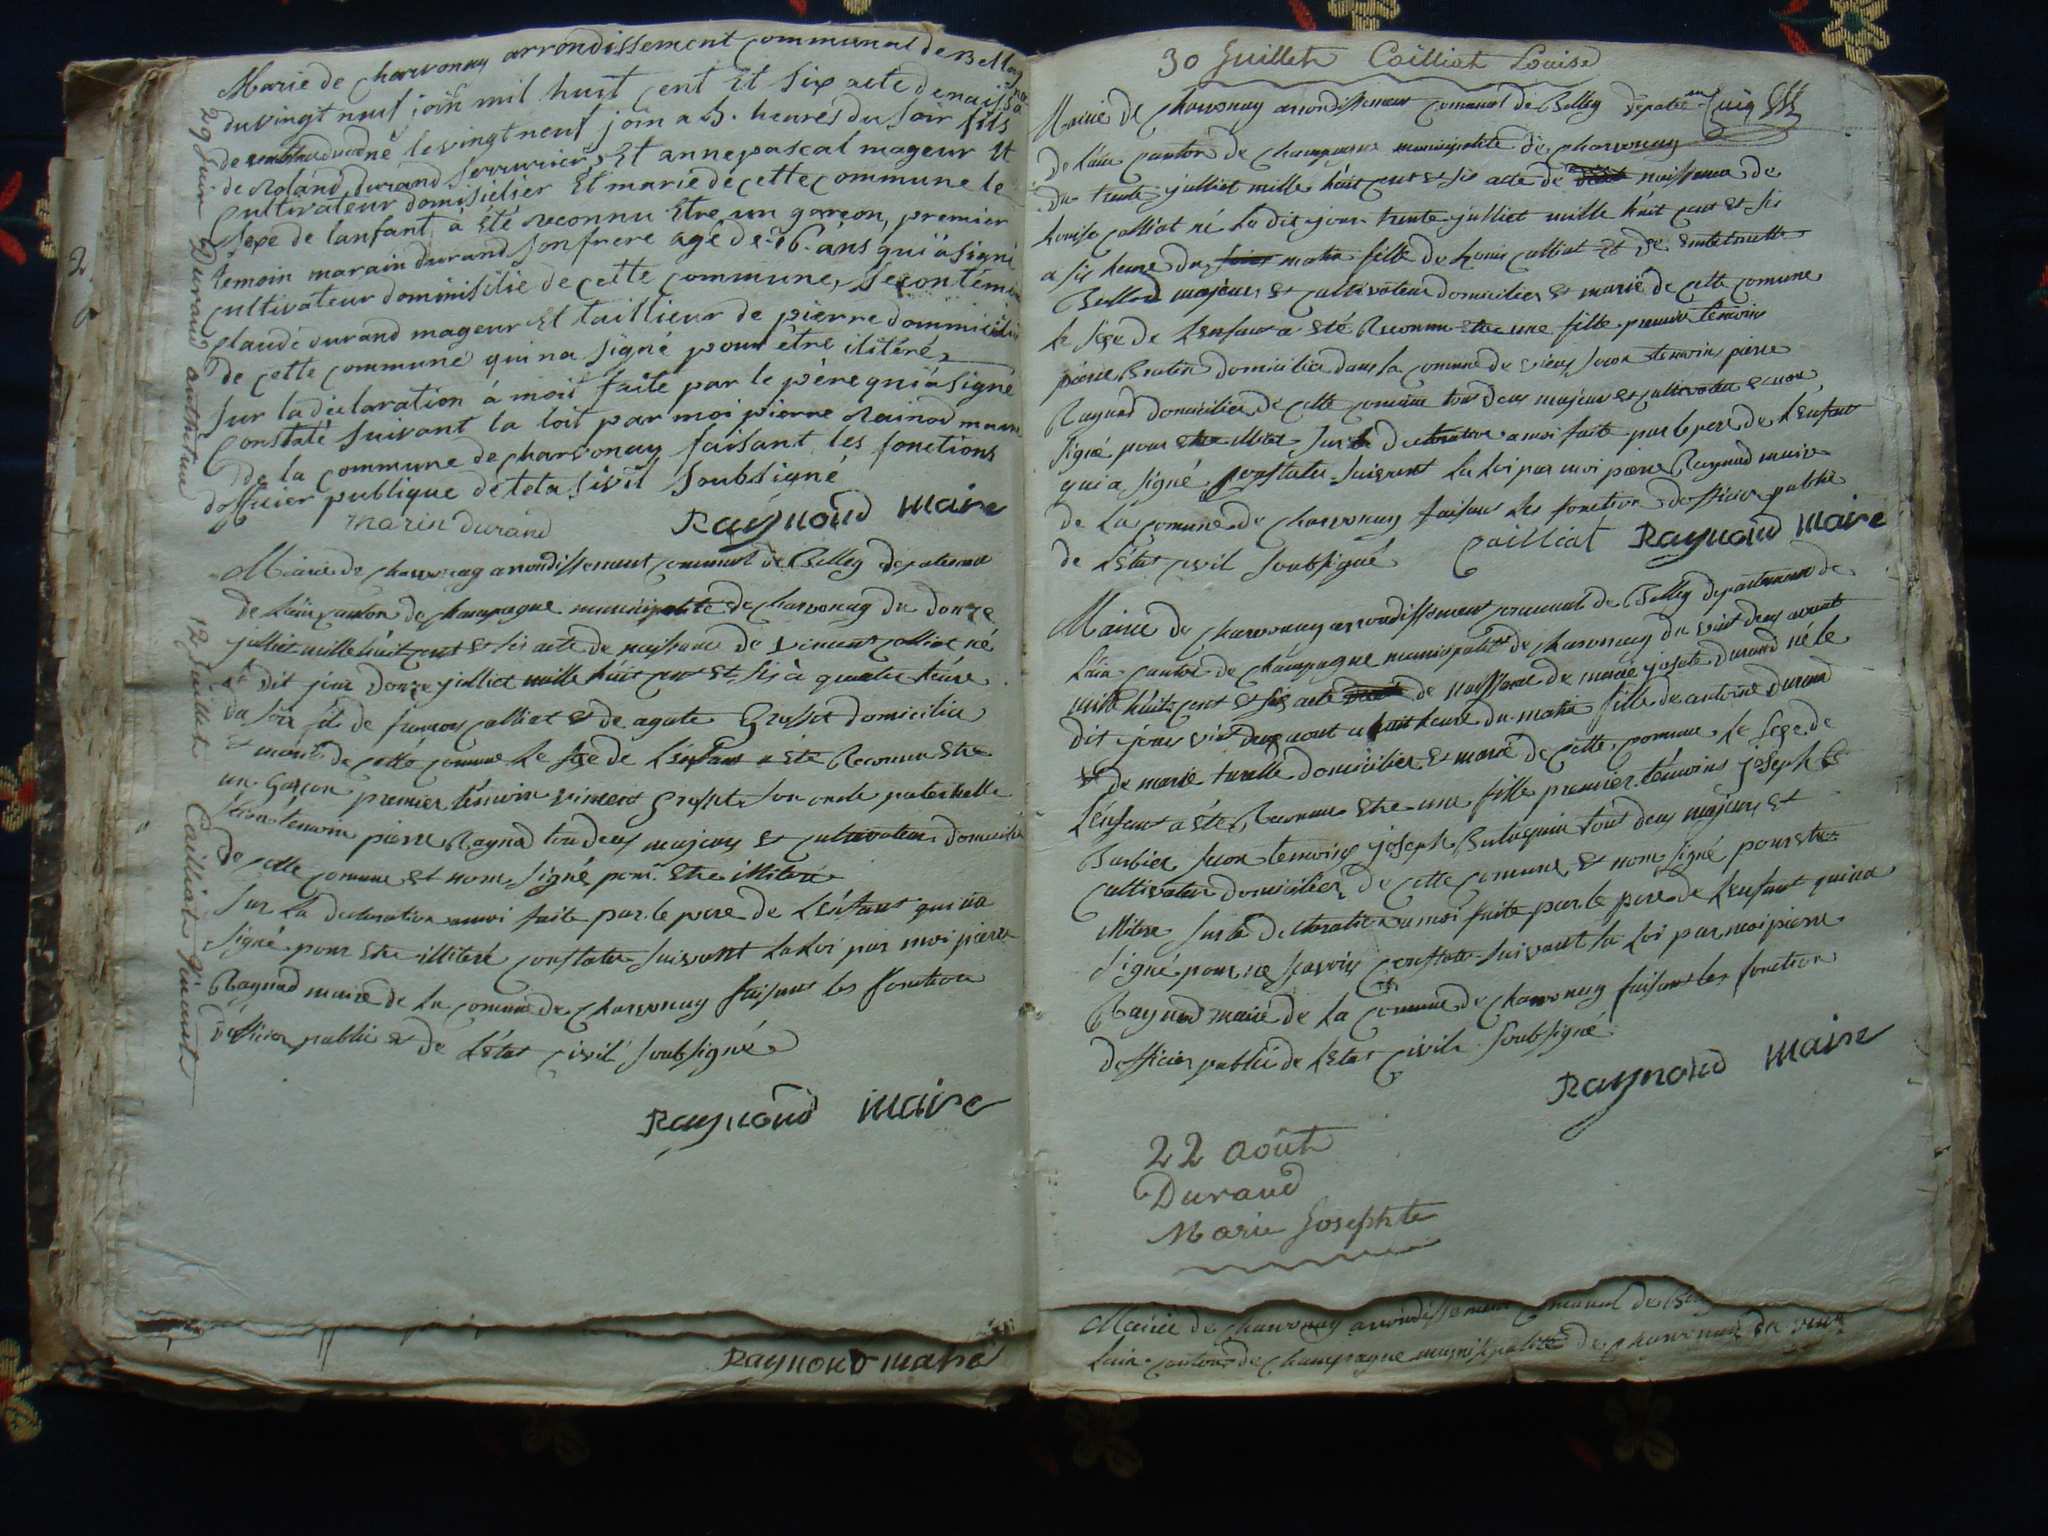 Marie de charvonay arrondissement communal de Belley
du vingt neuf join mil huit cent Et Six acte denaissa
né le vingt neuf join a 5. heures du Soir fils
de Roland durand Serrurier, Et anne pascal mageur Et
cultivateur domisielier Et marie de cette commune le
Sexe de lanfant, à Eté reconnu Etre un garcon, premier
temoin marain durand son frere agé de 26. ans qui à signé
cultivateur dominisilié de cette commune, Secontémoin
claude durand mageur Et taillieur de pierre dommicilié
de cette commune qui na signé pour être ilitéré
Sur la déclaration à moi faite par le père qui à signé
constaté suivant la loit par moi pierre Rainod maire
de la commune de charvonay faisant les fonctions
dofficier publique de leta sivil Soubsigné
marin durand Raynaud maire
29 Juin Durand anthelme
Mairie de charvonay arrondissement communal de Belley departement
de Lain canton de champagne municipalité de charvonay du douze
julliet mille hait cent et sis acte de naissance de vincent calliat né
le dit jour douze julliet mille hait cent Et sis à quatre heure
du soir fil de francois calliat et de agate Grosset domicilie
Et marié de cette comune Le sexe de L'enfant a Eté Reconnu Etre
un Garçon premier témoin vincent Grosset son oncle paternelle
secon témoin pierre Raynod tou deus majeurs Et cultivateur domicilié
de cette comune Et nom signé pour Etre illiteré
Sur La declaration a moi faite par le pere de L'enfant qui na
signé pour Etre illiteré constater suivant La Loi par moi pierre
Raynod maire de La comune de charvonay faisant les fonction
dofficier public et de L'état civil soubsigné
Raynaud maire
12 Juillet Cailliat Vincent
Raynaud maire
30 Juillet Cailliat Louise
Mairie de charvonay arrondissement comunal de Belley departem
de Lain canton de champagne municipalité de charvonay
du trente julliet mille hait cent et sis acte de naissance de
Louise calliat né La dit jour trente julliet mille hait cent Et sis
a sis heure du matin fille de Louis calliat et de
majeurs Et cultivateur domicilier Et marié de cette comune
Le sexe de L'enfant a Eté Reconnu Etre une fille premier temoin
pierre domicilier dans la comune de vieu secon temoins pierre
Raynod domicilier de cette comune tous deus majeurs et cultivateur
signé pour Etre illiteré Sur la declaration a moi faite par le pere de L'enfant
qui a signé constater suivant La Loi par moi pierre Raynod maire
de La comune de charvonay faisant Les fonction dofficier public
de L'état civil soubsigné cailliat Raynaud maire
Mairie de charvonay arrondissement comunal de Belley departement de
Lain canton de champagne municipalité de charvonay du vint deus aout
mille hait cent Et sis acte de naissance de marie josete Durand né le
dit jour vint deus aout a huit heure du matin fille de antoine Durand
Et de marie domicilier Et marié de cette comune Le sexe de
L'enfant a Eté Reconnu Etre une fille premier témoins joseph
Barbier secon temoins joseph tous deus majeurs Et
cultivateur domicilier de cette comune Et nom signé pour Etre
illitere Sur la declaration a moi faite par le pere de L'enfant qui na
signé pour ne scavoir constater suivant la Loi par moi pierre
Raynod maire de La comune de charvonay faisant les fonction
dofficier public de L'état civil soubsigné
Raynaud maire
22 août
Durand
Marie Josephte
Mairie de charvonay arrondissement comunal de
Lain canton de champagne municipalité de charvonay du